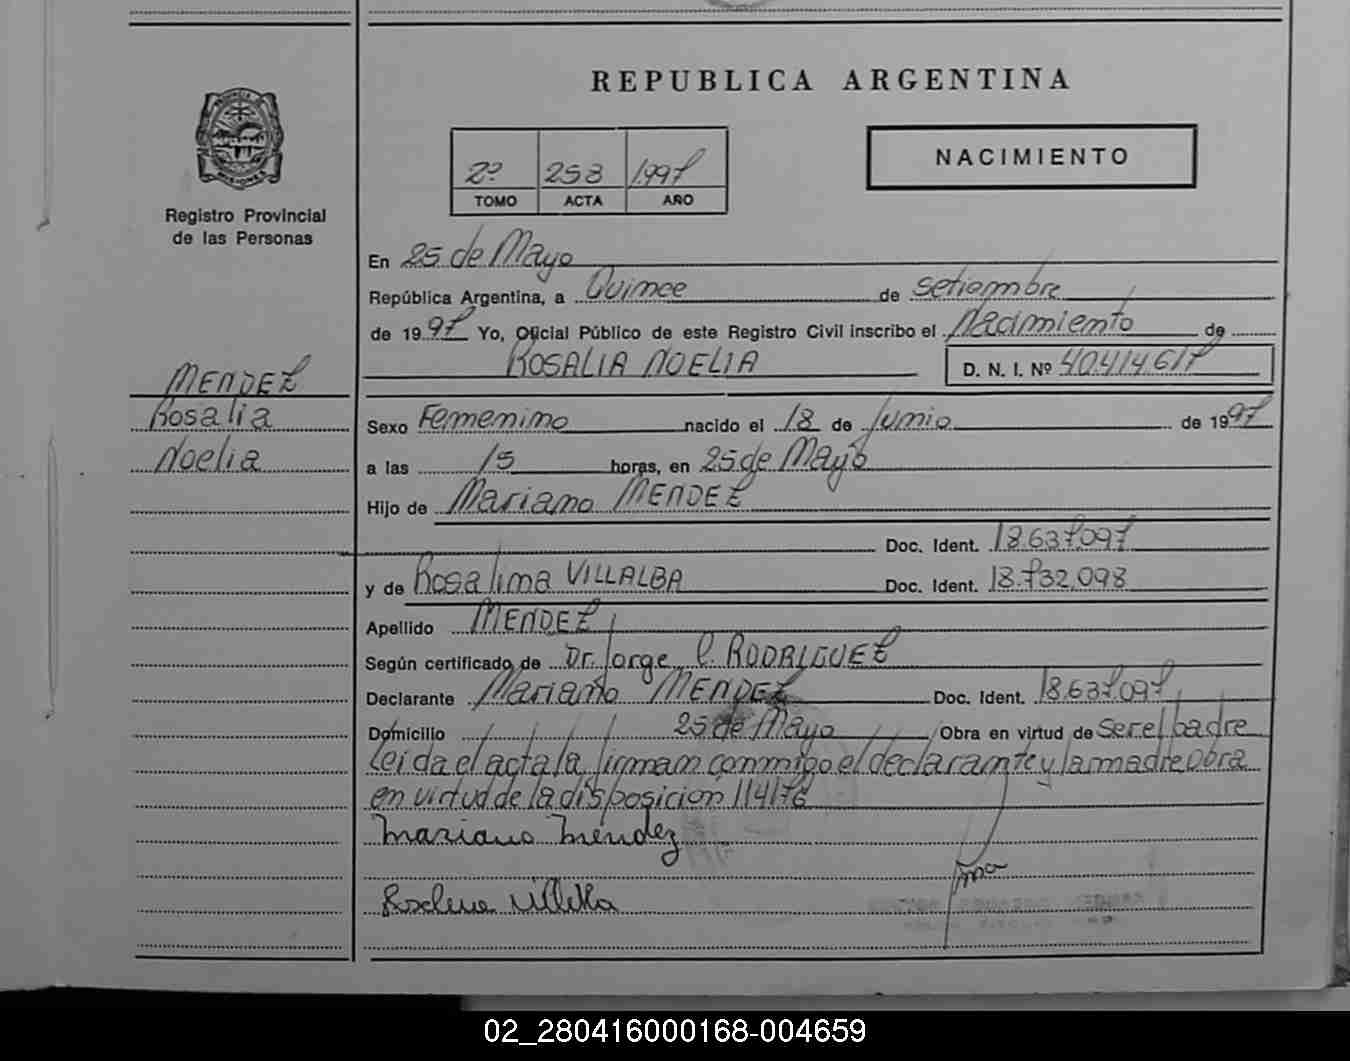 REPUBLICA ARGENTINA
NACIMIENTO
2º 253 1.997
TOMO ACTA AÑO
Registro Provincial
de las Personas
En 25 de Mayo
República Argentina, a Quince de setiembre
de 1997 Yo, Oficial Público de este Registro Civil inscribo el Nacimiento de
ROSALIA NOELIA D. N. I. Nº 40.414.617
MENDEZ
Rosalia
Noelia
Sexo Femenino nacido el 18 de Junio de 1997
a las 15 horas, en 25 de Mayo
Hijo de Mariano MENDEZ
Doc. Ident. 18.637.097
y de Rosalima VILLALBA Doc. Ident. 18.732.098
Apellido MENDEZ
Según certificado de Dr. Jorge C. RODRIGUEZ
Declarante Mariano MENDEZ Doc. Ident. 18.637.097
Domicilio 25 de Mayo Obra en virtud de Ser el padre
Leida el acta la firman conmigo el declarante y la madre obra
en virtud de la disposición 114/76
Mariano Mendez
02_280416000168-004659